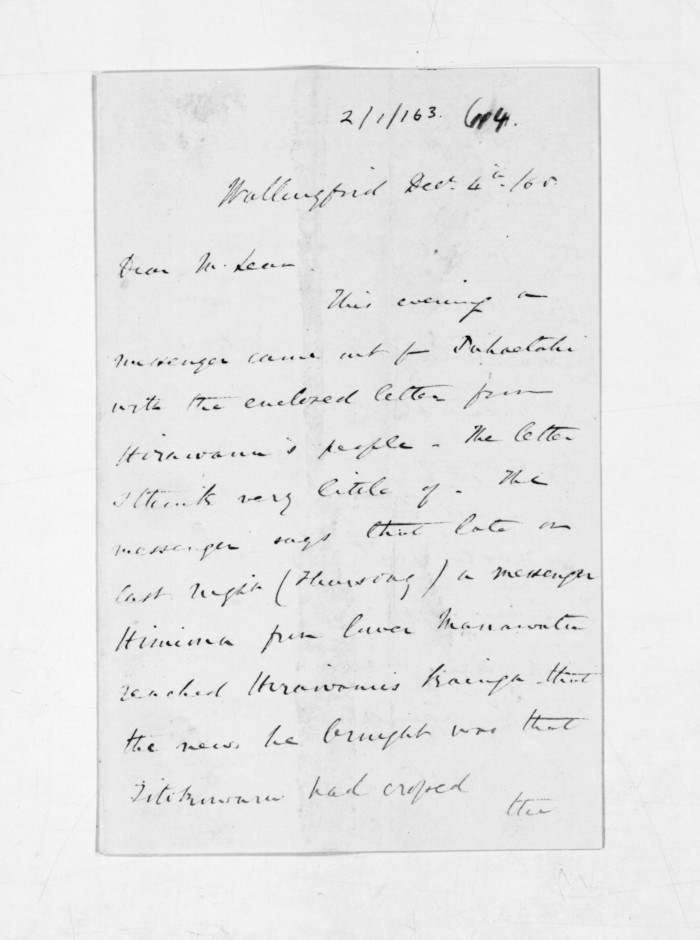 2/1/163. 64.
Wallingford Decr. 4th /68
Dear McLean
This evening a
messenger came out fr
with the enclosed letter from
Hirawanu's people. The letter
I think very little of. The
messenger says that late on
last night (Thursday) a messenger
Himiona from lower Manawatu
reached Hirawanu's kainga that
the news he brought was that
Titokuwaru had crossed
the